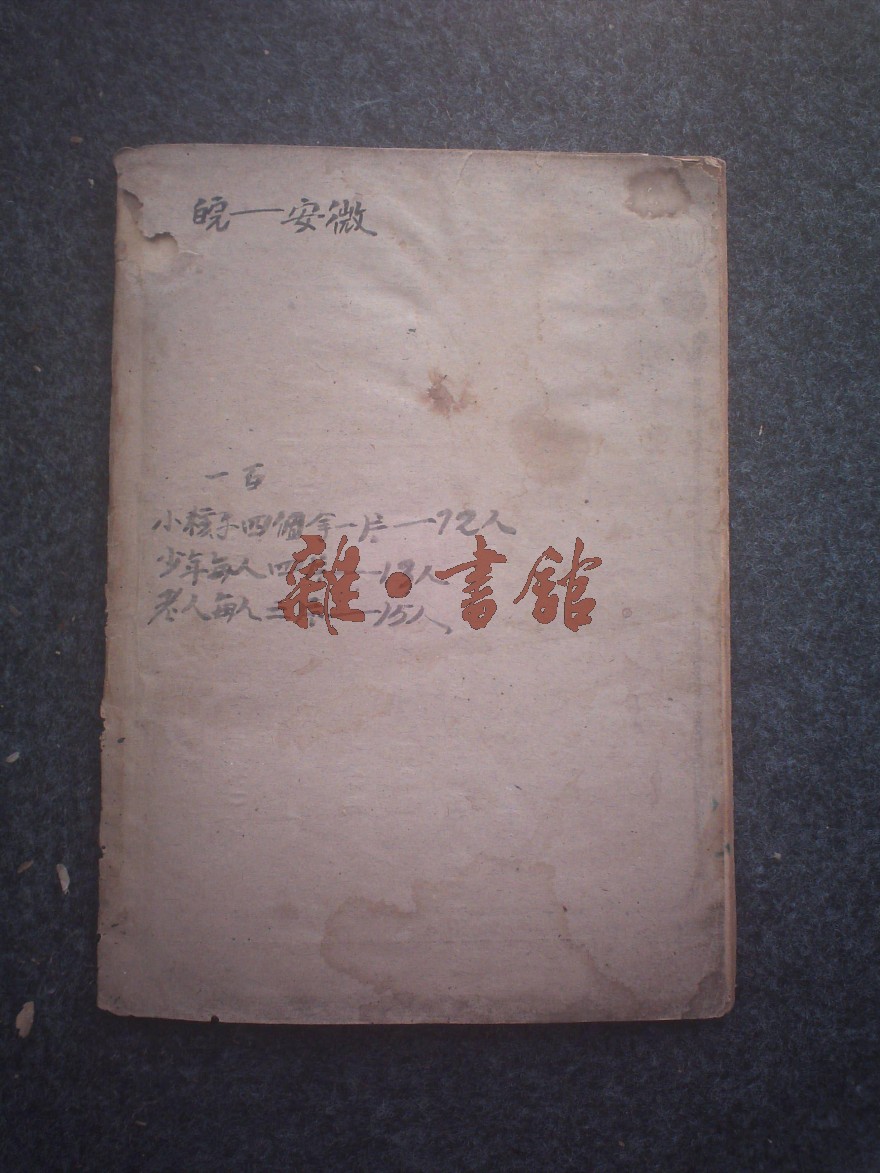 皖—安微
一百
小孩子四個拿一片—72人
少年每人四 —13人
老人每人 —15人
雜·書館